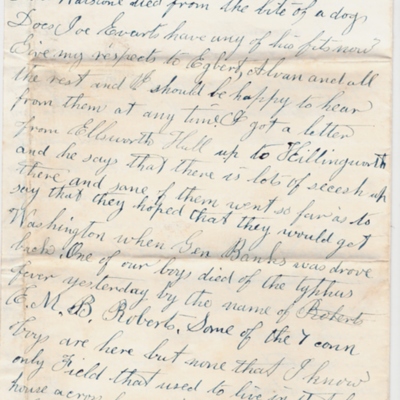 died from the bite of a dog
Does Joe Everts have any of his fits now
Give my respects to Egbert, Alvan and all
the rest and I should be happy to hear
from them at any time. I got a letter
from Ellsworth Hull up to Killingworth
and he says that there is lots of secesh up
there and some of them went so far as to
say that they hoped that they would get
Washington when Gen Banks was drove
back. One of our boys died of the typhus
fever yesterday by the name of Roberts
E. M. B. Roberts. Some of the 7 conn
boys are here but none that I know
only Field that used to live in that
house across